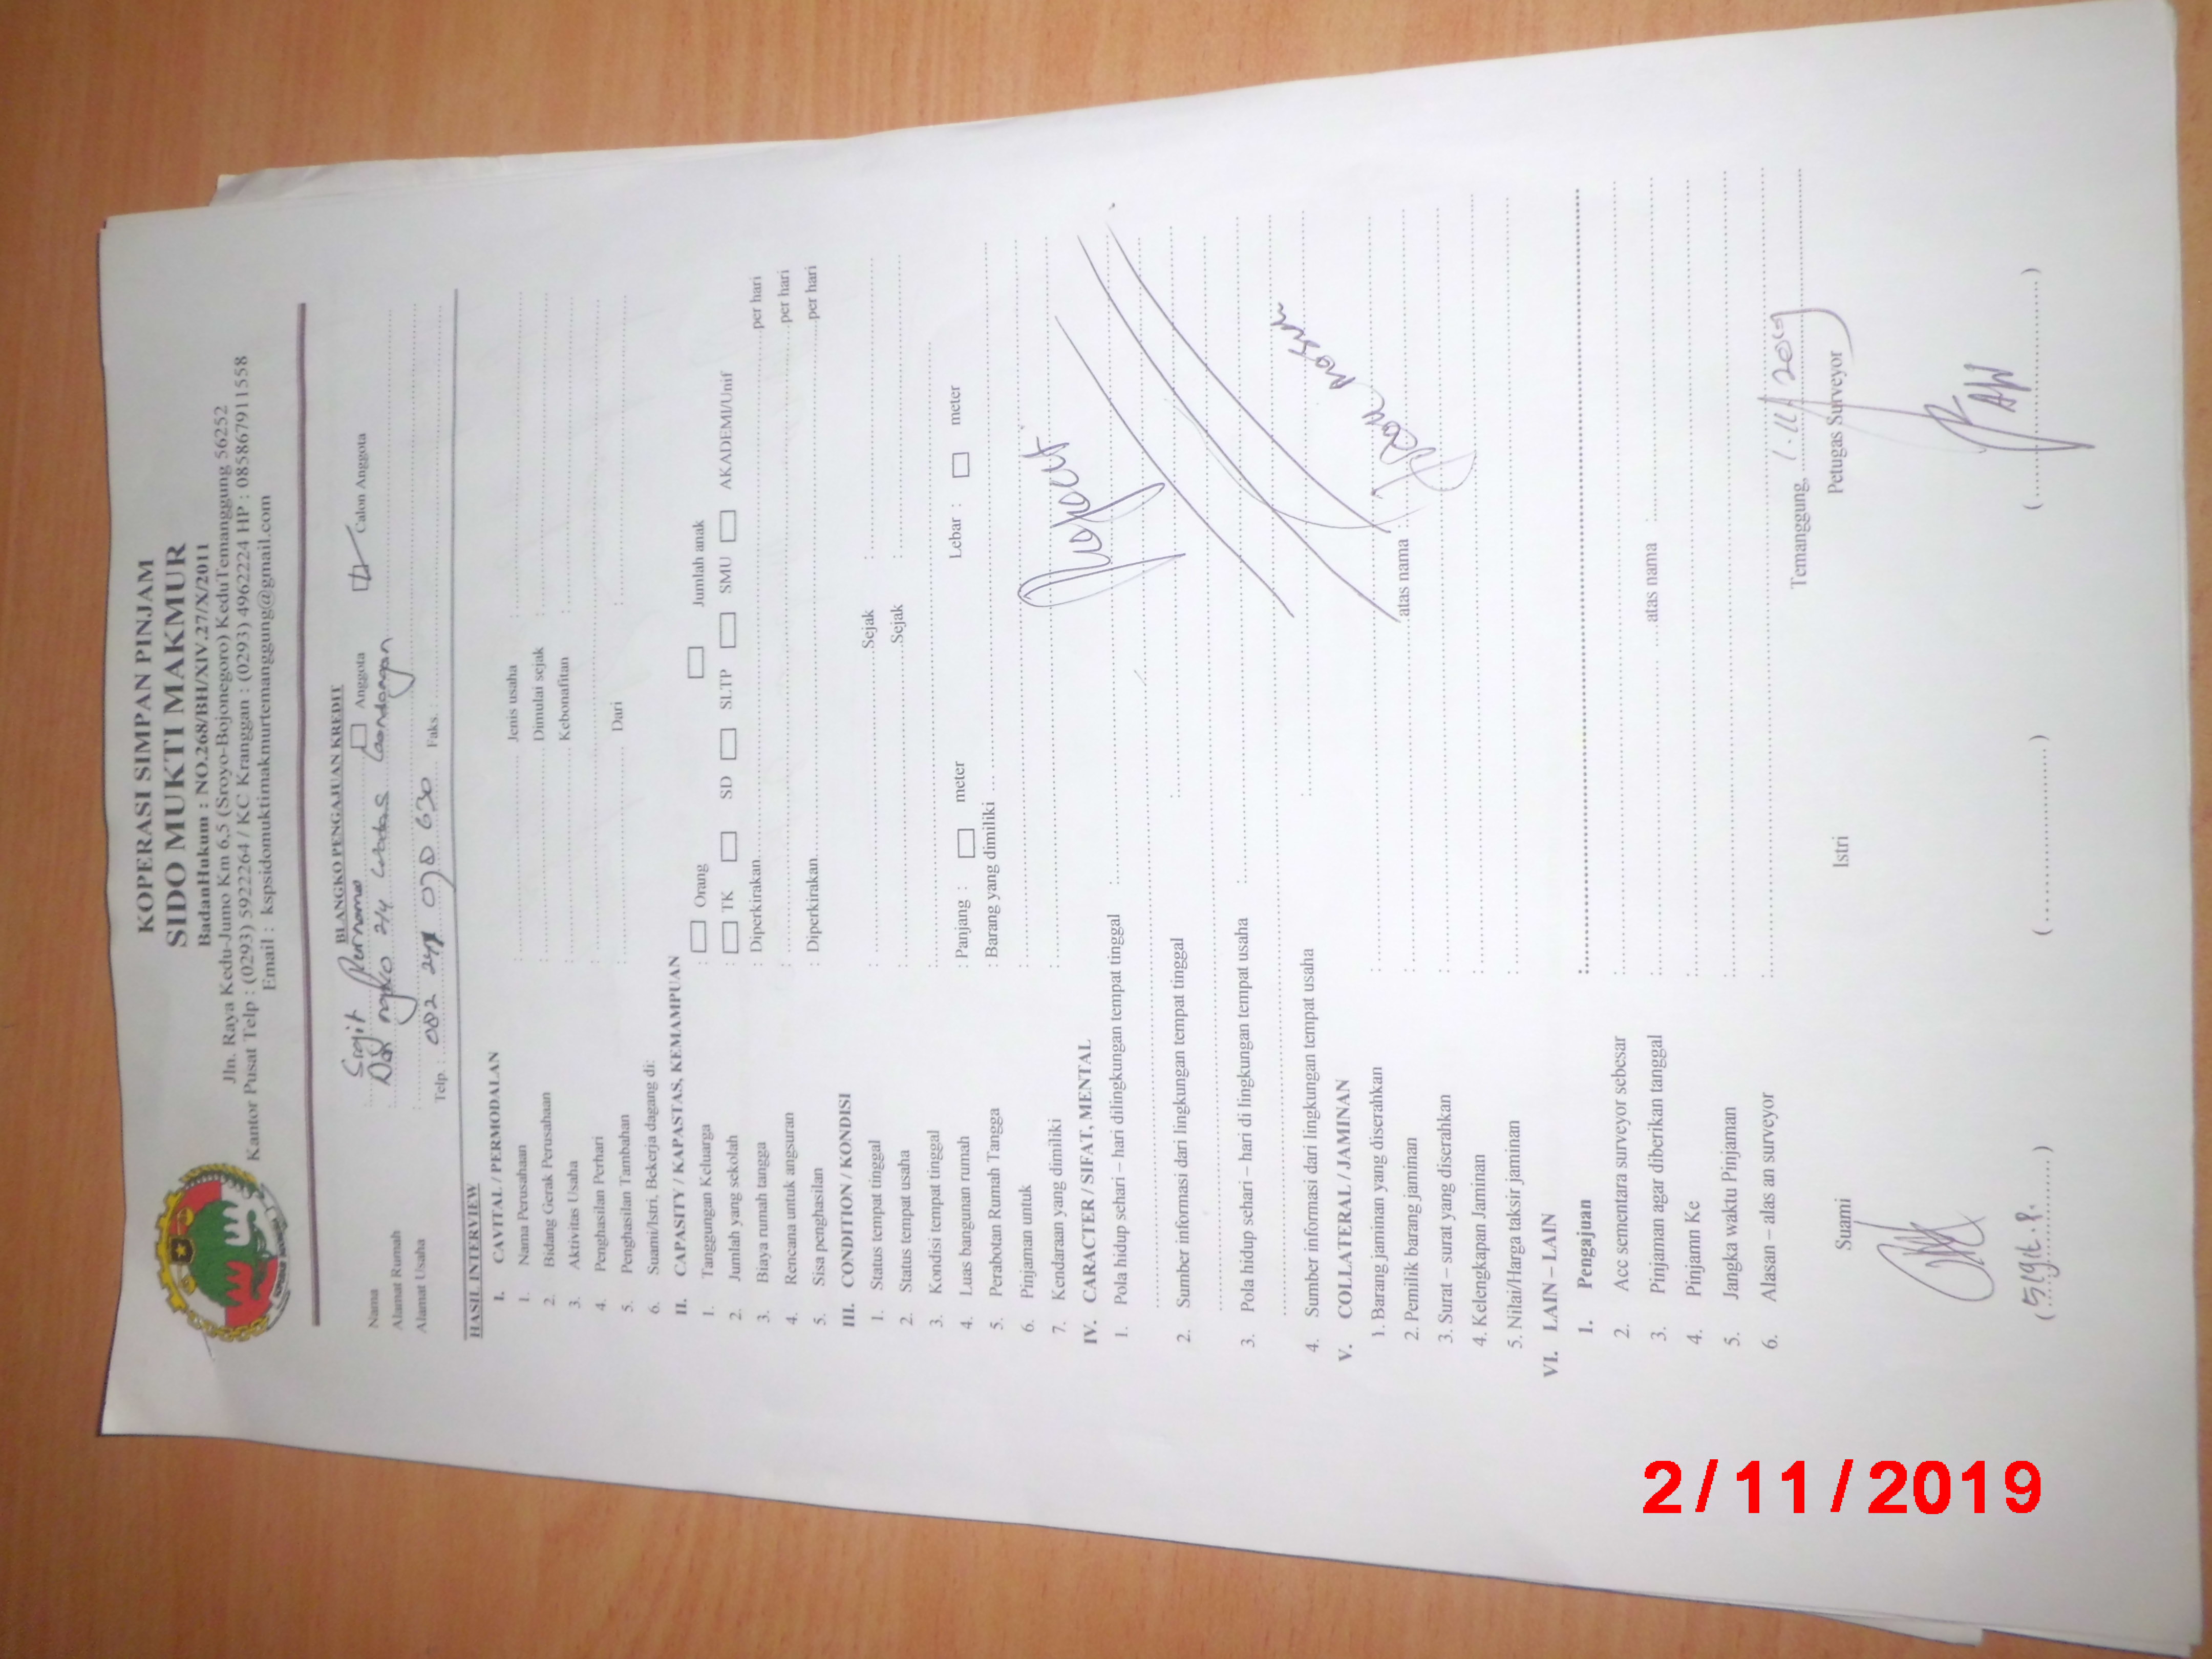 KOPERASI SIMPAN PINJAM
SIDO MUKTI MAKMUR
BadanHukum : NO.268/BH/XIV.27/X/2011
Jln. Raya Kedu-Jumo Km 6,5 (Sroyo-Bojonegoro) KeduTemanggung 56252
Kantor Pusat Telp : (0293) 5922264 / KC Kranggan : (0293) 4962224 HP : 085867911558
Email : kspsidomuktimakmurtemanggung@gmail.com
BLANGKO PENGAJUAN KREDIT
Nama : Sigit Purnomo Anggota Calon Anggota
Alamat Rumah : 2/4
Alamat Usaha :
Telp. : 082 Faks. :
HASIL INTERVIEW
I. CAVITAL / PERMODALAN
1. Nama Perusahaan : Jenis usaha :
2. Bidang Gerak Perusahaan : Dimulai sejak :
3. Aktivitas Usaha : Kebonafitan :
4. Penghasilan Perhari :
5. Penghasilan Tambahan : Dari :
6. Suami/Istri, Bekerja dagang di:
II. CAPASITY / KAPASTAS, KEMAMPUAN
1. Tanggungan Keluarga : Orang Jumlah anak
2. Jumlah yang sekolah : TK SD SLTP SMU AKADEMI/Unif
3. Biaya rumah tangga : Diperkirakan per hari
4. Rencana untuk angsuran : per hari
5. Sisa penghasilan : Diperkirakan per hari
III. CONDITION / KONDISI
1. Status tempat tinggal : Sejak :
2. Status tempat usaha : Sejak :
3. Kondisi tempat tinggal :
4. Luas bangunan rumah : Panjang : meter Lebar : meter
5. Perabotan Rumah Tangga : Barang yang dimiliki
6. Pinjaman untuk :
7. Kendaraan yang dimiliki :
IV. CARACTER / SIFAT, MENTAL
1. Pola hidup sehari – hari dilingkungan tempat tinggal :
2. Sumber informasi dari lingkungan tempat tinggal :
3. Pola hidup sehari – hari di lingkungan tempat usaha :
4. Sumber informasi dari lingkungan tempat usaha :
V. COLLATERAL / JAMINAN
1. Barang jaminan yang diserahkan :
2. Pemilik barang jaminan : atas nama :
3. Surat – surat yang diserahkan :
4. Kelengkapan Jaminan :
5. Nilai/Harga taksir jaminan :
VI. LAIN – LAIN
1. Pengajuan :
2. Acc sementara surveyor sebesar :
3. Pinjaman agar diberikan tanggal : atas nama :
4. Pinjamn Ke :
5. Jangka waktu Pinjaman :
6. Alasan – alas an surveyor :
Temanggung,
Suami Istri Petugas Surveyor
(Sigit. P.) ( ) ( )
2/11/2019